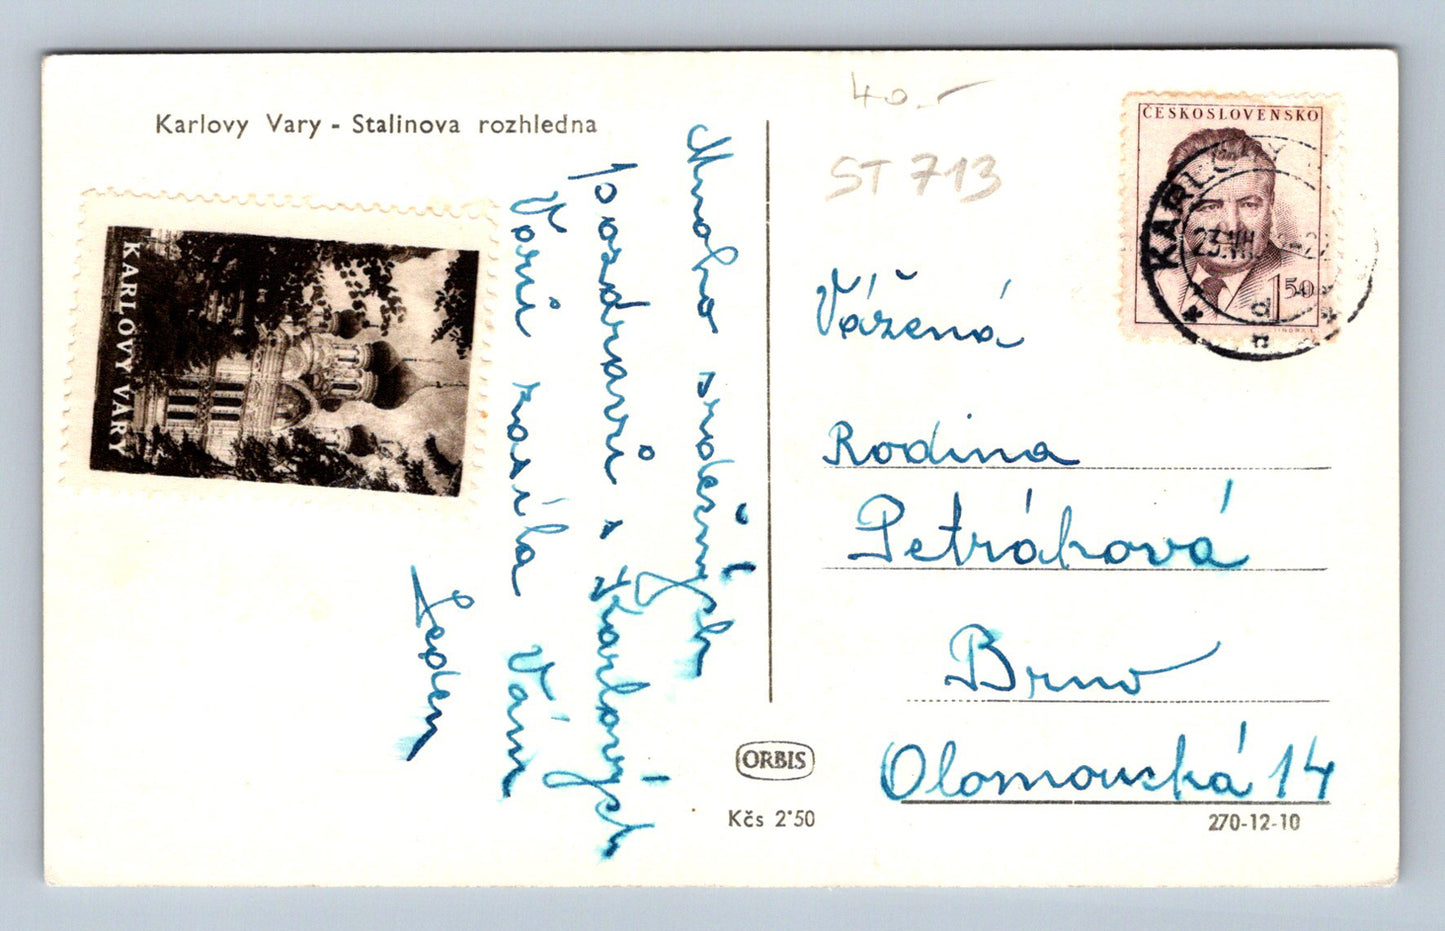 Karlovy Vary - Stalinova rozhledna
KARLOVY VARY
Mnoho srdečných
pozdravů z Karlových
Varů zasílá Vám
40.-
ST 713
ČESKOSLOVENSKO
1 50
KARLOVY
23.VII.
Vážená
Rodina
Petráková
Brno
Olomoucká 14
ORBIS
Kčs 2'50
270-12-10